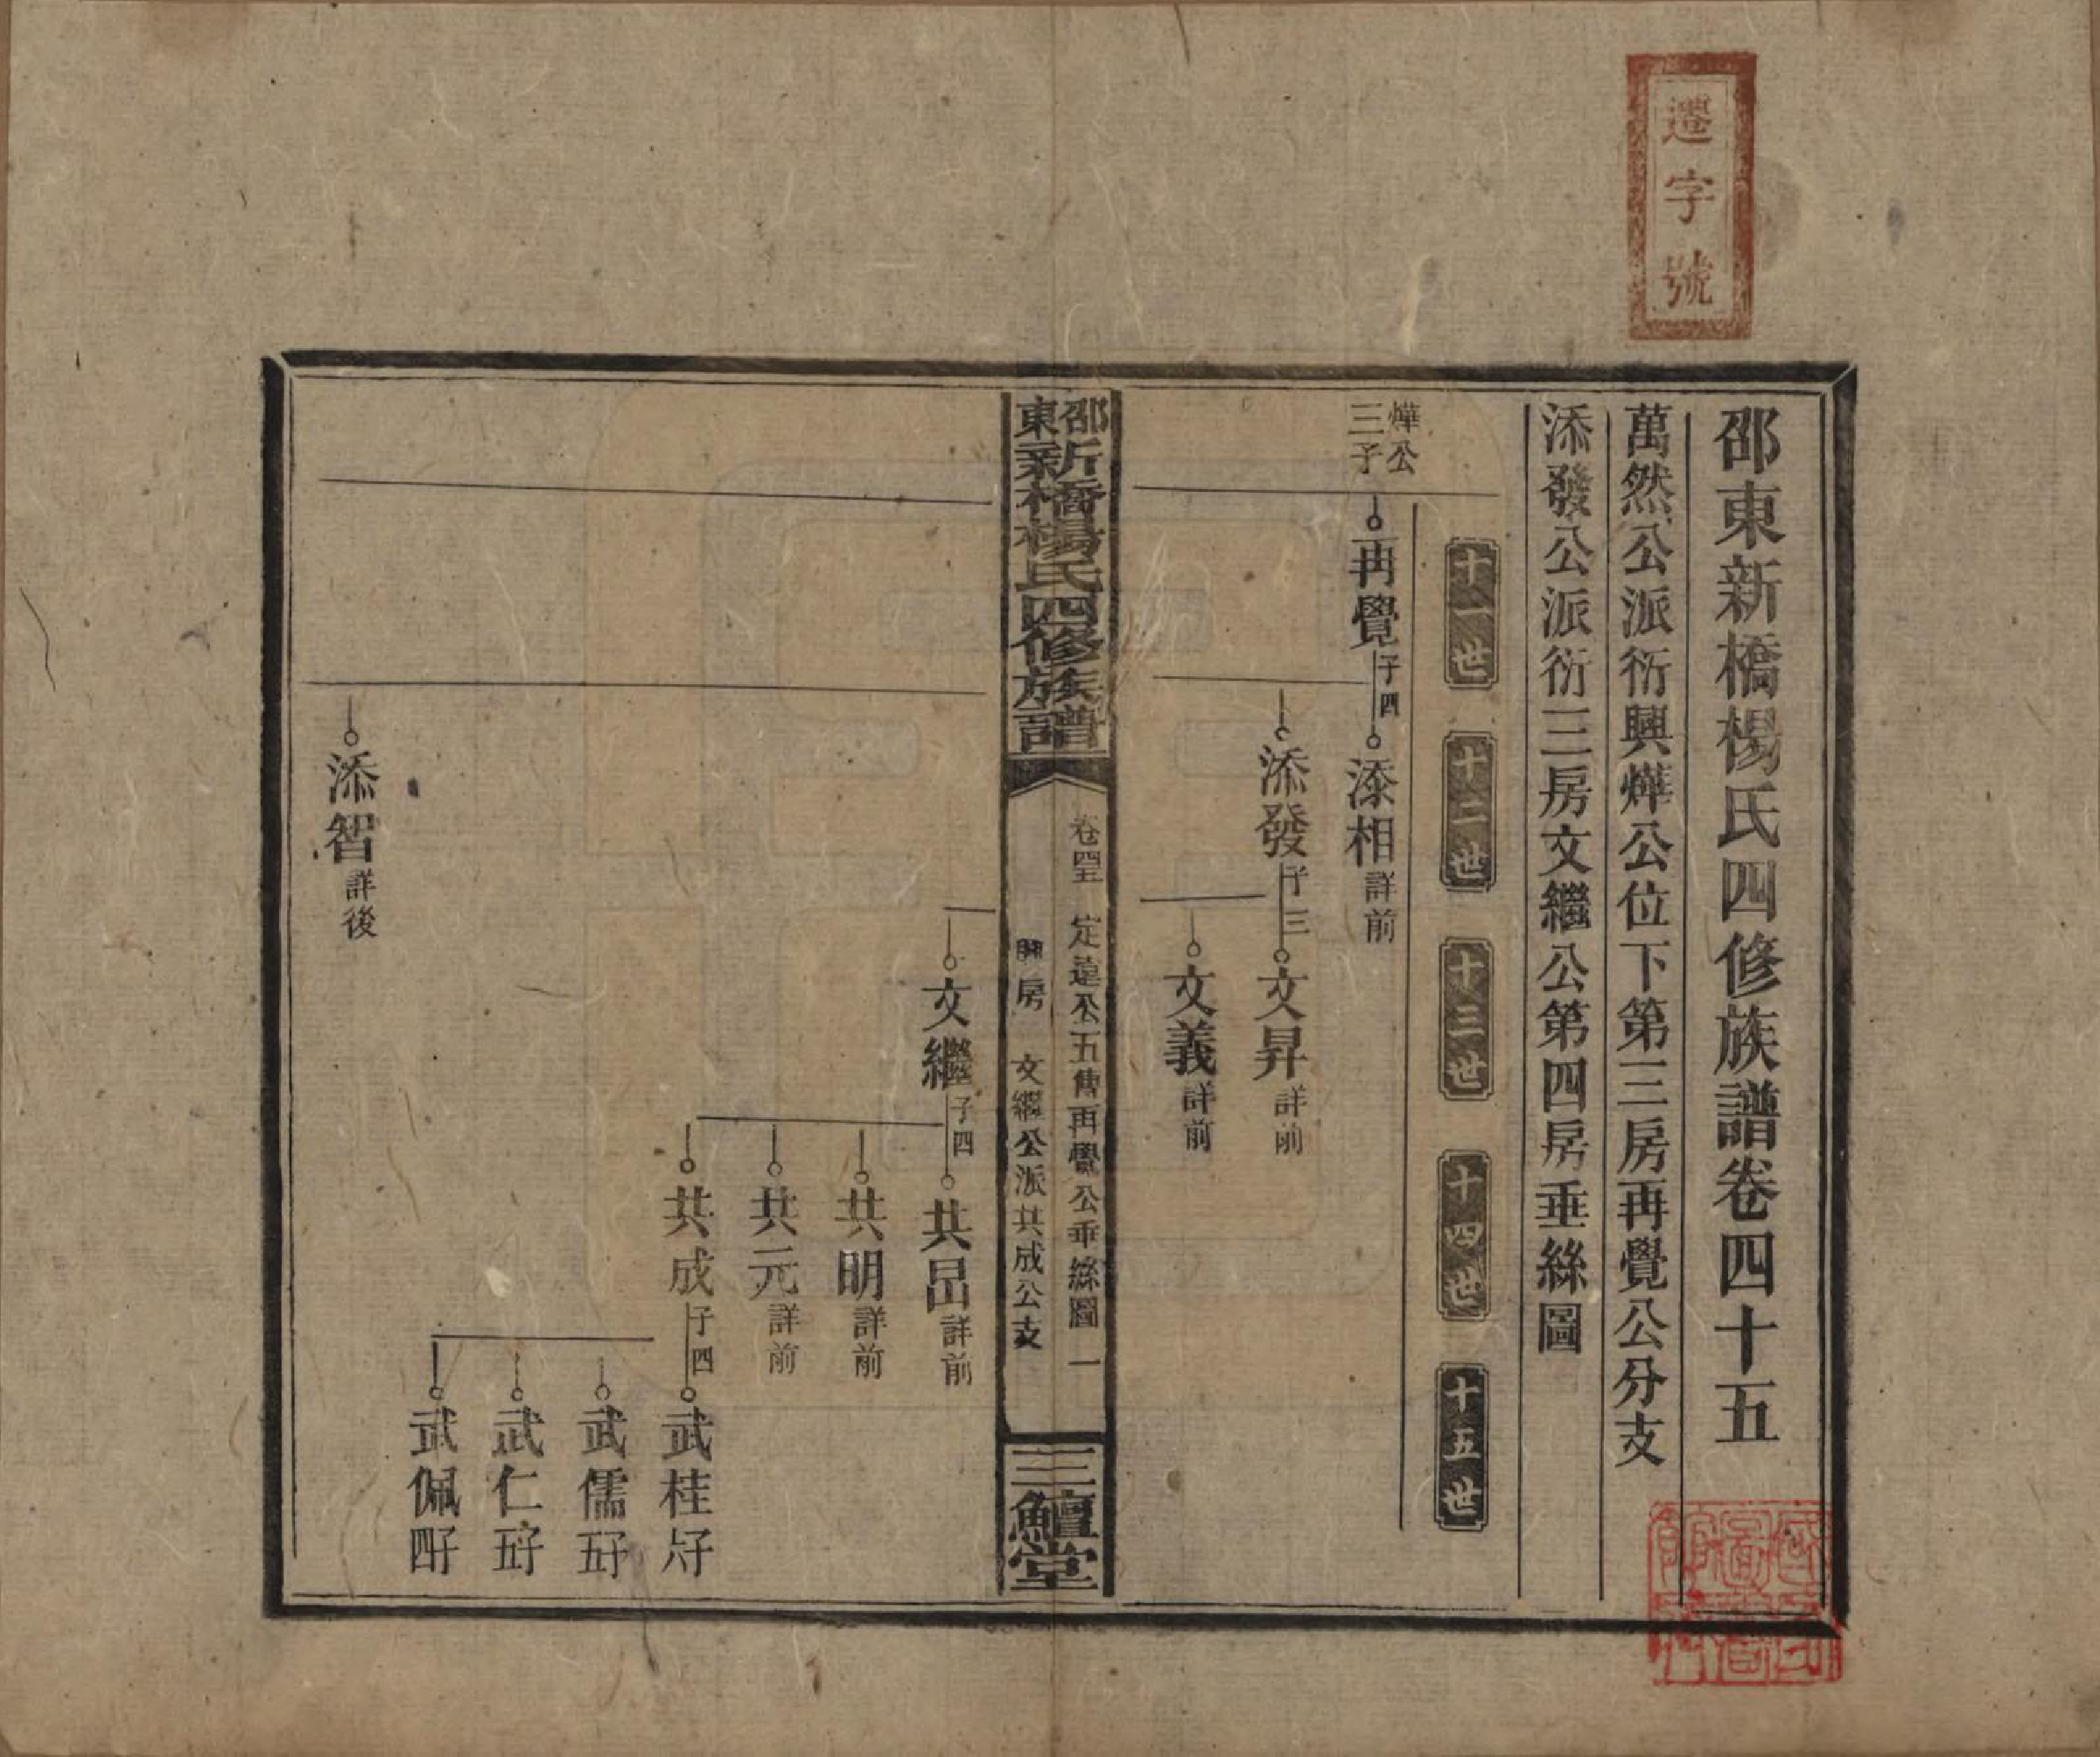 遷字號
邵東新橋楊氏四修族譜卷四十五
萬然公派衍興燁公位下第三房再覺公分支
添發公派衍三房文繼公第四房垂絲圖
十一世
十二世
十三世
十四世
十五世
燁公
三子
再覺 子四
添相 詳前
添發 子三
文昇 詳前
文義 詳前
邵東新橋楊氏四修族譜
卷四五 定遠公五傳再覺公垂絲圖 一
興房 文繼公派共成公支
三鱣堂
文繼 子四
共昌 詳前
共明 詳前
共元 詳前
共成 子四
武桂
武儒 五子
武仁 五子
武佩 四子
添智 詳後